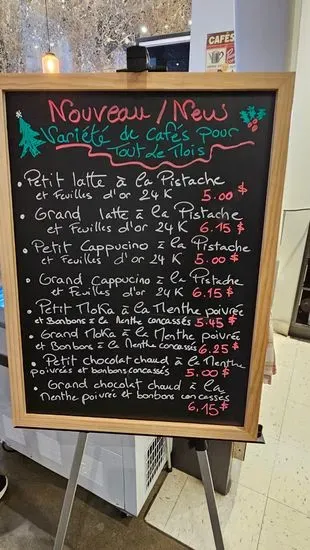 CAFÉS
Nouveau / New
Variété de Cafés pour
Tout de Mois
• Petit latte à la Pistache
et Feuilles d'or 24K 5.00 $
• Grand latte à la Pistache
et Feuilles d'or 24K 6.15 $
• Petit Cappucino à la Pistache
et Feuilles d'or 24K 5.00 $
• Grand Cappucino à la Pistache
et Feuilles d'or 24K 6.15 $
• Petit Moka à la Menthe poivrée
et Bonbons à la Menthe concassés 5.45 $
• Grand Moka à la Menthe poivrée
et Bonbons à la Menthe concassés 6.25 $
• Petit chocolat chaud à la Menthe
poivrées et bonbons concassés 5.00 $
• Grand chocolat chaud à la
Menthe poivrée et bonbons concassés
6,15 $